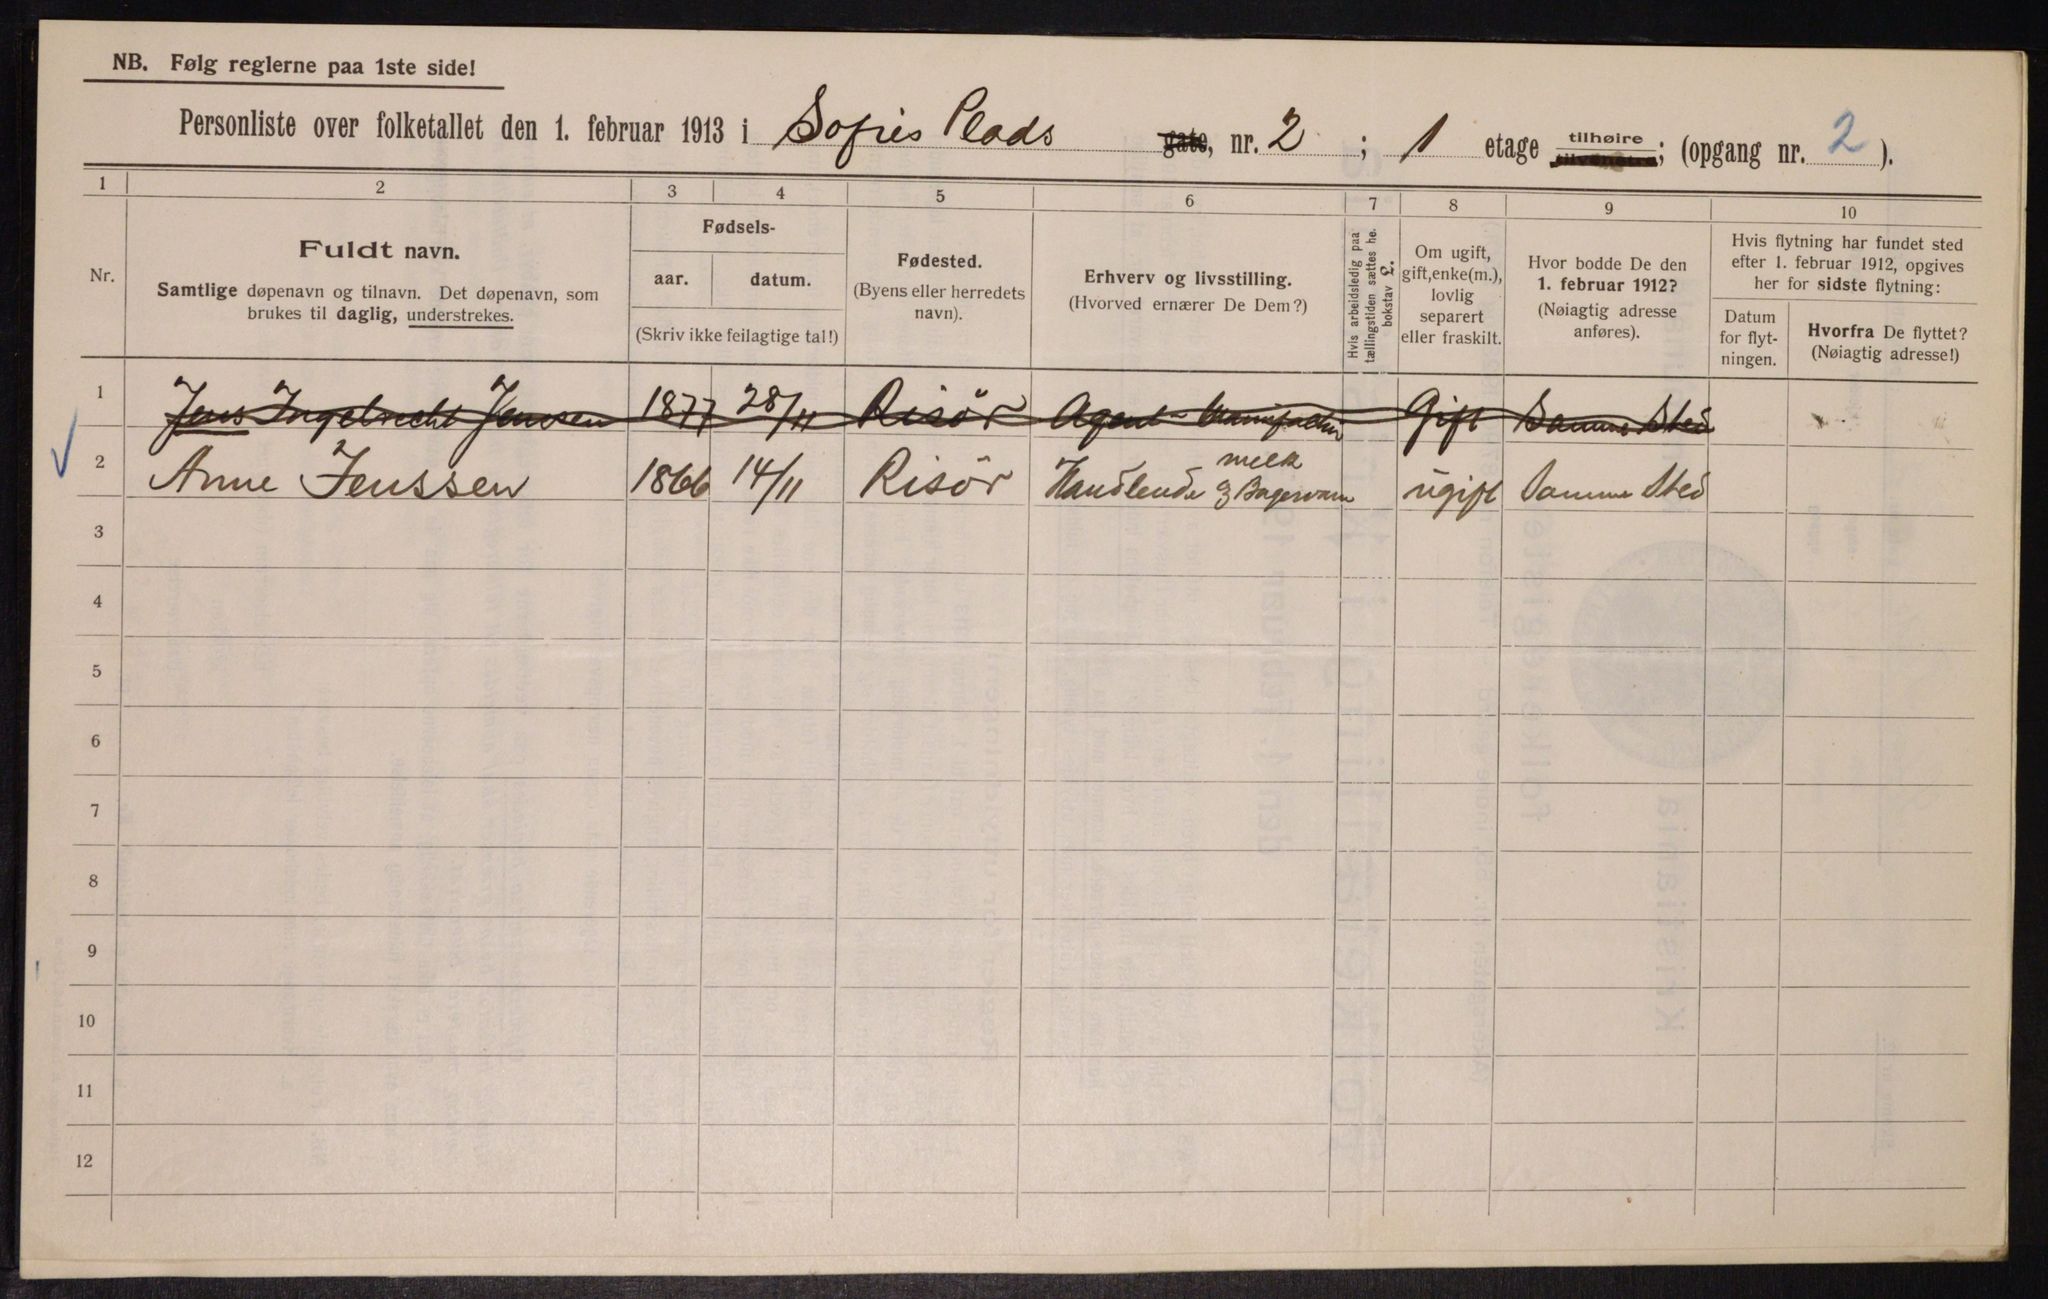 NB. Følg reglerne paa 1ste side!
Personliste over folketallet den 1. februar 1913 i Sofies Plads gate, nr. 2 ; 1 etage tilhøire tilvenstre; (opgang nr. 2 ).
1 2 3 4 5 6 7 8 9 10
Nr.
Fuldt navn.
Samtlige døpenavn og tilnavn. Det døpenavn, som
brukes til daglig, understrekes.
Fødsels-
aar. datum.
(Skriv ikke feilagtige tal!)
Fødested.
(Byens eller herredets
navn).
Erhverv og livsstilling.
(Hvorved ernærer De Dem?)
Hvis arbeidsledig paa
tællingstiden sættes he.
bokstav L.
Om ugift,
gift, enke(m.),
lovlig
separert
eller fraskilt.
Hvor bodde De den
1. februar 1912?
(Nøiagtig adresse
anføres).
Hvis flytning har fundet sted
efter 1. februar 1912, opgives
her for sidste flytning:
Datum
for flyt-
ningen.
Hvorfra De flyttet?
(Nøiagtig adresse!)
1 Jens Ingebrecht Jenssen 1877 28/11 Risör Agent Gift Samme Sted
2 Anne Jenssen 1866 14/11 Risör Handlende melk & Bagervarer ugift Samme Sted
3
4
5
6
7
8
9
10
11
12